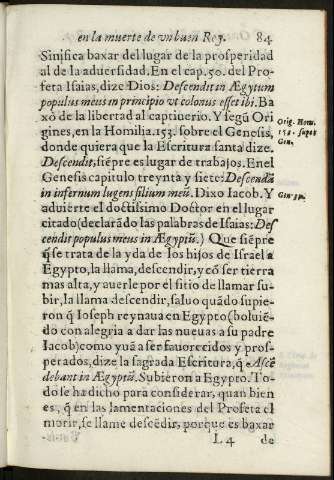 en la muerte de vn buen Rey. 84
Sinifica baxar del lugar de la prosperidad
al de la aduersidad. En el cap. 50. del Pro-
feta Isaias, dize Dios: Descendit in Ægytum
populus meus in principio vt colonus esset ibi. Ba
xò de la libertad al captiuerio. Y segũ Ori
gines, en la Homilia. 153. sobre el Genesis,
Orig. Hom.
153. super
Gen.
donde quiera que la Escritura santa dize.
Descendit, siẽpre es lugar de trabajos. En el
Genesis capitulo treynta y siete: Descendã
in infernum lugens filium meũ. Dixo Iacob. Y
Gen. 37.
aduierte el doctissimo Doctor en el lugar
citado (declarãdo las palabras de Isaias: Des
cendit populus meus in Ægyptũ.) Que siẽpre
q̃ se trata de la yda de los hijos de Israel a
Egypto, la llama, descendir, y cõ ser tierra
mas alta, y auerle por el sitio de llamar su-
bir, la llama descendir, saluo quãdo supie-
ron q̃ Ioseph reynaua en Egypto (boluiẽ-
do con alegria a dar las nueuas a su padre
Iacob) como yuã a ser fauorecidos y pros-
perados, dize la sagrada Escritura, q̃ Ascẽ
debant in Ægyptũ. Subieron a Egypto. To-
do se ha dicho para considerar, quan bien
es, q̃ en las lamentaciones del Profeta el
morir, se llame descẽdir, porque es baxar
L 4 de